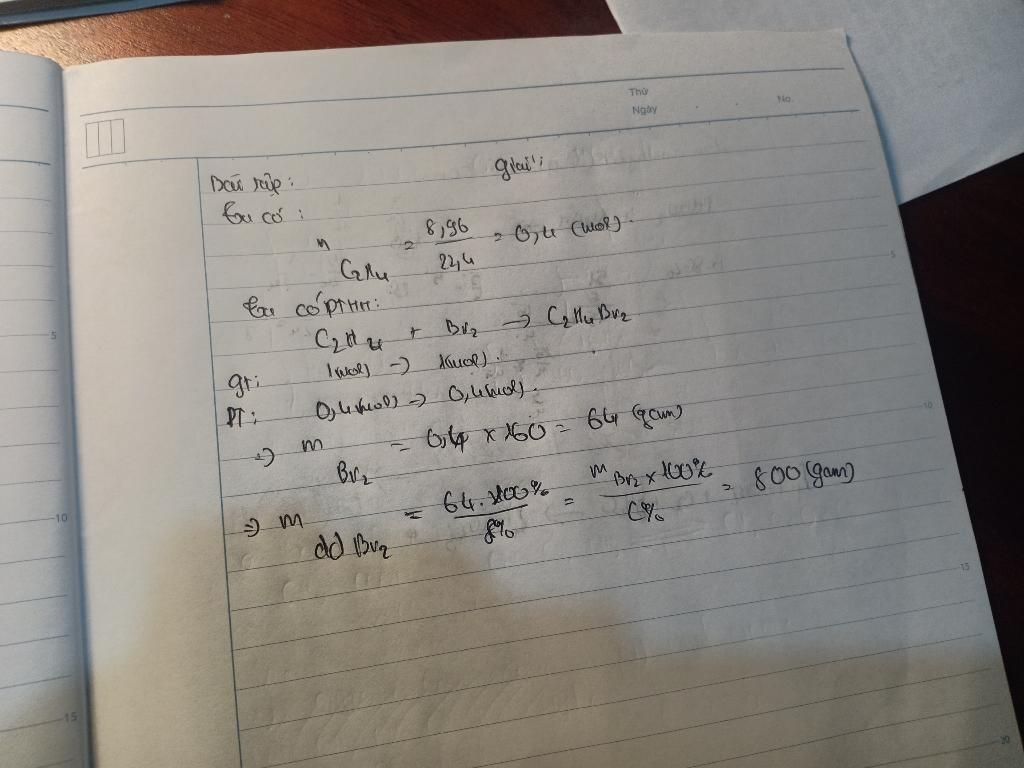 Thứ
Ngày . . No.
Giải:
Ta có:
n C2H4 = 8,96 / 22,4 = 0,4 (mol).
Ta có PTHH:
C2H4 + Br2 → C2H4Br2
gt: 1(mol) → 1(mol).
PT: 0,4(mol) → 0,4(mol).
=> m Br2 = 0,4 x 160 = 64 (gam)
=> m dd Br2 = 64.100% / 8% = m Br2 x 100% / C% = 800 (gam)
5
10
15
5
10
15
20